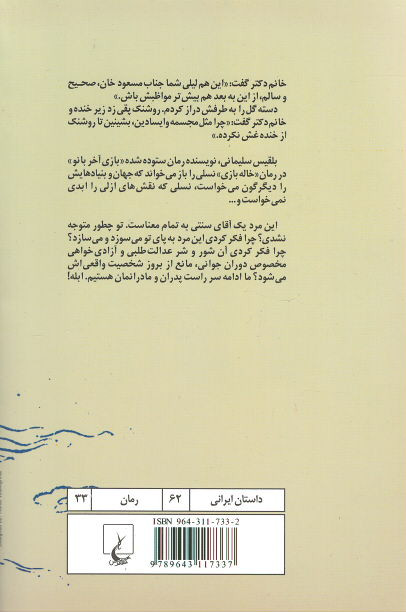 خانم دکتر گفت: «این هم لیلی شما جناب مسعود خان، صحیح
و سالم، از این به بعد هم بیش‌تر مواظبش باش.»
دسته گل را به طرفش دراز کردم. روشنک پقی زد زیر خنده و
خانم دکتر گفت: «چرا مثل مجسمه وایسادین، بشینین تا روشنک
از خنده غش نکرده.»
بلقیس سلیمانی، نویسنده رمان ستوده شده «بازی آخر بانو»
در رمان «خاله بازی» نسلی را باز می‌خواند که جهان و بنیادهایش
را دیگرگون می‌خواست، نسلی که نقش‌های ازلی را ابدی
نمی‌خواست و...
این مرد یک آقای سنتی به تمام معناست. تو چطور متوجه
نشدی؟ چرا فکر کردی این مرد به پای تو می‌سوزد و می‌سازد؟
چرا فکر کردی آن شور و شر عدالت‌طلبی و آزادی‌خواهی
مخصوص دوران جوانی، مانع از بروز شخصیت واقعی‌اش
می‌شود؟ ما ادامه سر راست پدران و مادرانمان هستیم. ابله!
داستان ایرانی ۶۲ رمان ۳۳
ISBN 964-311-733-2
9 789643 117337